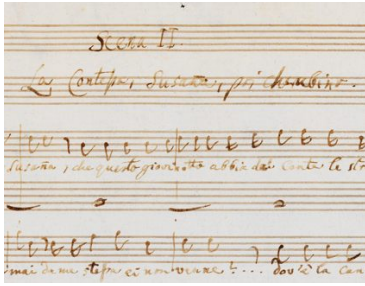 Scena II.
La Contessa, Susana, poi cherubino.
Susana, che questo giovinotto abbia dal Conte le stra
mai da me stessa ei non venne?.... dov'é la Can